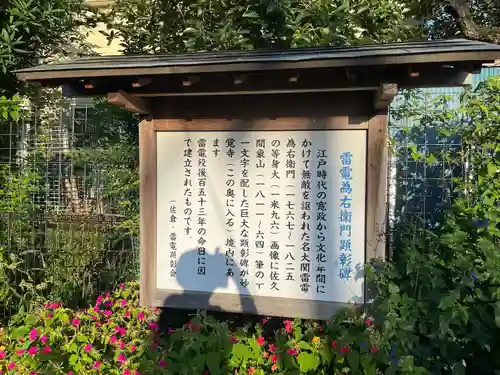 雷電為右衛門顕彰碑
江戸時代の寛政から文化年間に
かけて無敵を謳われた名大関雷電
為右衛門(一七六七〜一八二五
)の等身大(一米九六)画像に佐久
間象山(一八一一〜六四)筆の
一文字を配した巨大な顕彰碑が妙
覚寺(この奥に入る)境内にあ
ります
雷電歿後百五十三年の命日に因
んで建立されたものです。
(佐倉・雷電顕彰会)